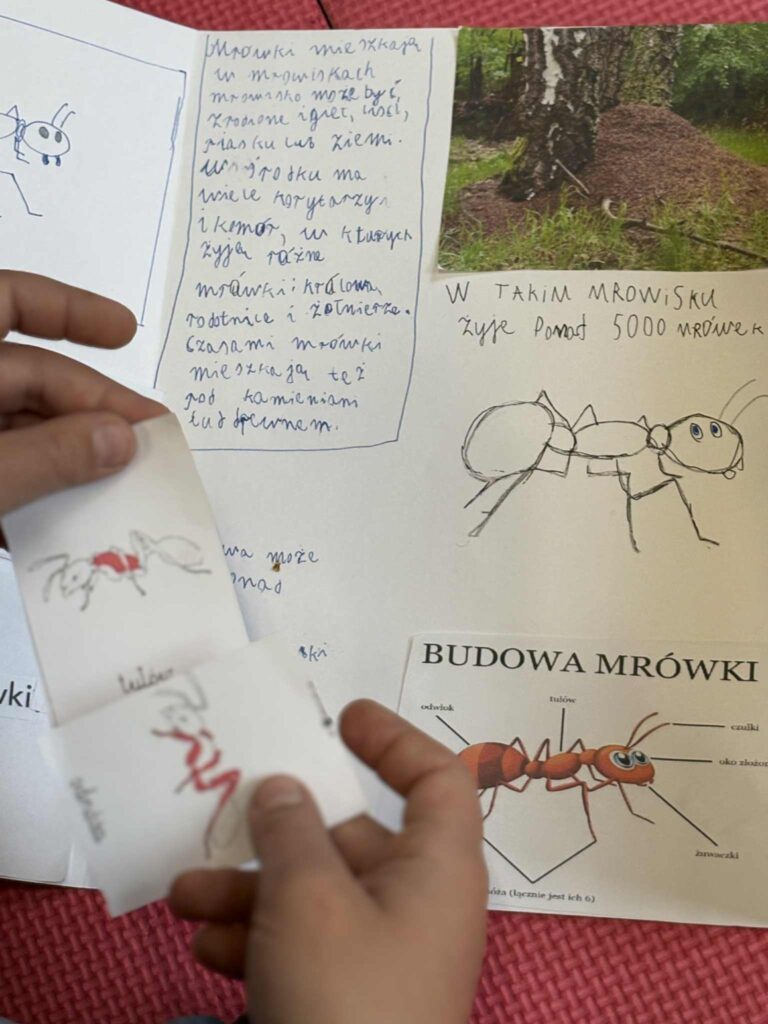 Mrówki mieszkają
w mrowiskach
mrowisko może być
zrobione igieł, liści,
piasku lub ziemi.
W środku ma
wiele korytarzy
i komór, w kturych
żyją różne
mrówki: królowa,
robotnice i żołnierze.
Czasami mrówki
mieszkają też
pod kamieniami
W TAKIM MROWISKU
żyje Ponad 5000 MRÓWEK
wa może
onad
ski
wki
tułów
BUDOWA MRÓWKI
odwłok
tułów
czułki
oko złożon
żuwaczki
óża (łącznie jest ich 6)